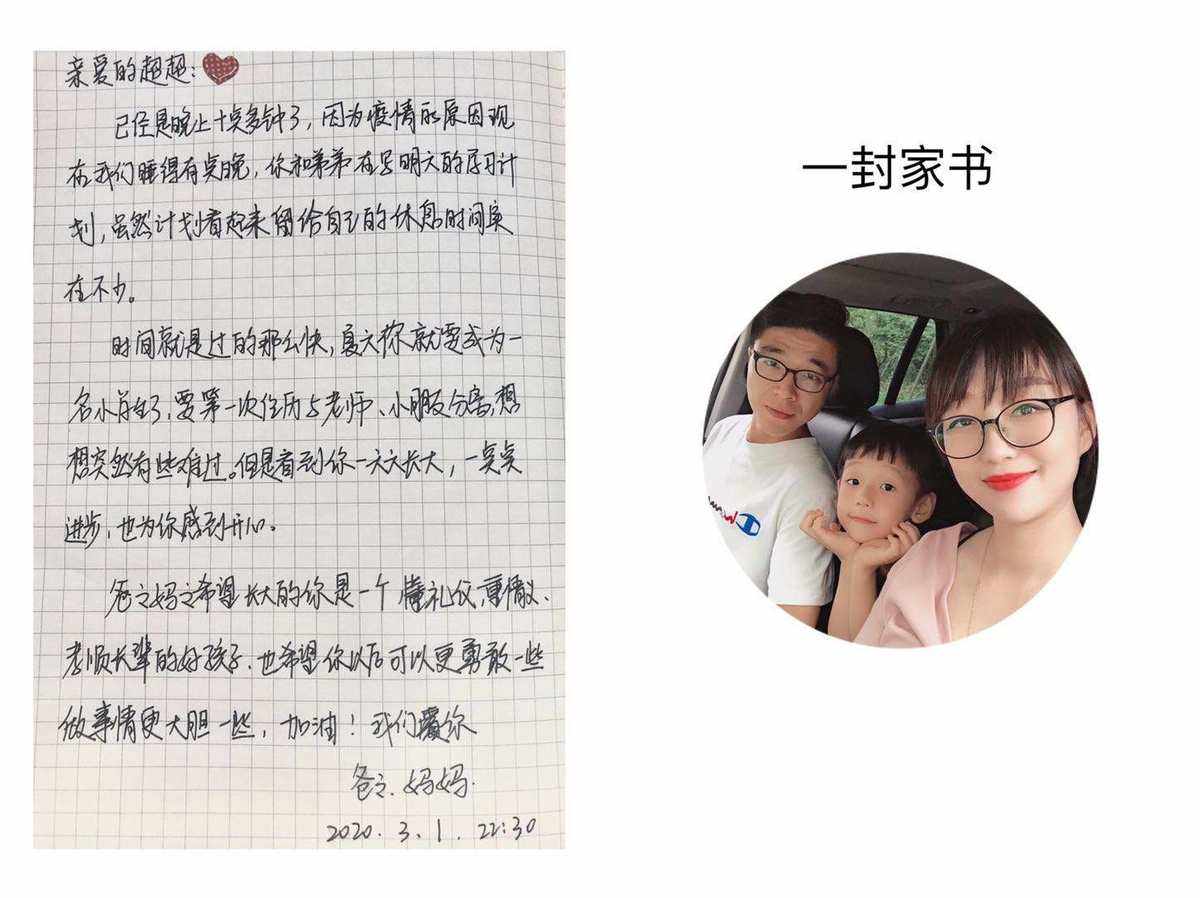 亲爱的超超:
已经是晚上十点多钟了,因为疫情的原因现
在我们睡得有点晚,你和弟弟在写明天的学习计
划,虽然计划看起来留给自己的休息时间实
在不少。
时间就是过的那么快,夏天你就要成为一
名小学生了,要第一次经历与老师、小朋友分离,想
想突然有些难过。但是看到你一天天长大,一点点
进步,也为你感到开心。
爸爸妈妈希望长大的你是一个懂礼仪、重情义、
孝顺长辈的好孩子.也希望你以后可以更勇敢一些
做事情更大胆一些,加油!我们爱你
爸爸.妈妈.
2020.3.1.22:30
一封家书
Champion